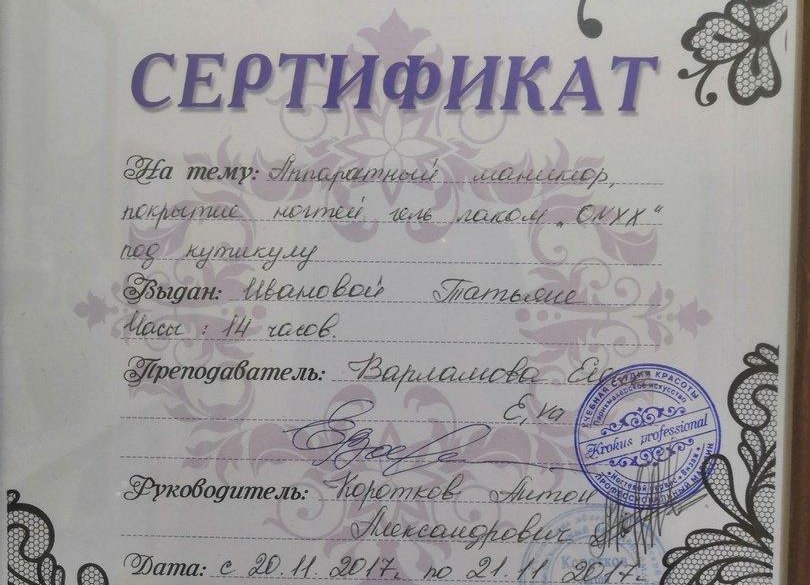 СЕРТИФИКАТ
На тему: Аппаратный маникюр,
покрытие ногтей гель лаком „ONYX“
под кутикулу
Выдан: Ивановой Татьяне
Часы : 14 часов.
Преподаватель: Варламова
Руководитель: Коротков Антон
Александрович
Дата: с 20.11 2017г. по 21.11
УЧЕБНАЯ СТУДИЯ КРАСОТЫ
Парикмахерское искусство
Krokus professional
Ногтевой сервис • Визаж
ПРОФЕССИОНАЛЬНЫЙ МАГАЗИН